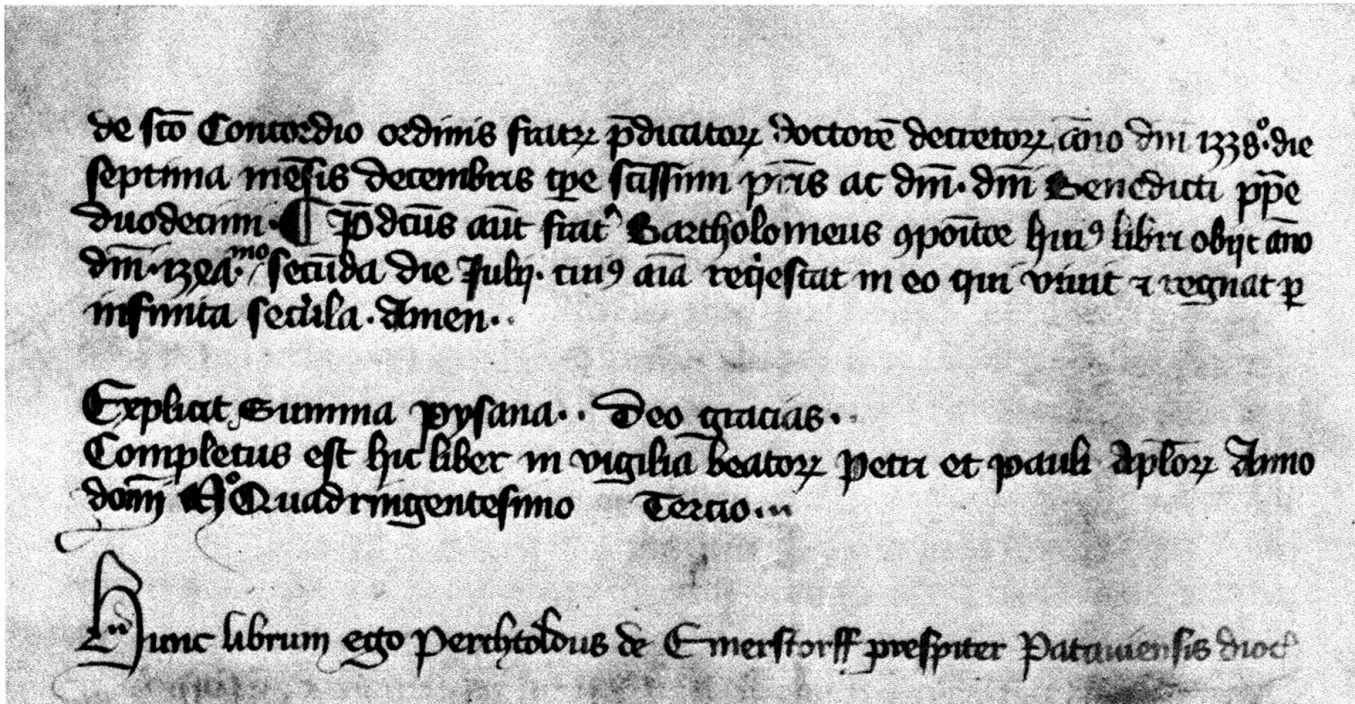 de sc̄o Concordio ordinis fratꝝ p̄dicatoꝝ doctorē decretoꝝ an̄o dn̄i 1338°. die
septima mēsis decembris tp̄e sc̄issimi pr̄is ac dn̄i. dn̄i Benedicti pp̄e
duodecimi. ¶ P̄dcūs aūt frat̉ Bartholomeus ꝯpoīto hui⁹ libri obijt an̄o
dn̄i. 13ꝝ7.ᵐᵒ secūda die Julij. cui⁹ aīa reqͥescat in eo qui viuit ⁊ regnat ꝑ
infinita secula. Amen.
Explicit Summa pysana.. Deo gracias..
Completus est hic liber in vigilia beatoꝝ Petri et pauli Ap̄loꝝ Anno
dom̄ M° Quadringentesimo Tercio...
Hunc librum ego Perchtoldus de Emerstorff prespiter Patauiensis dioc̄